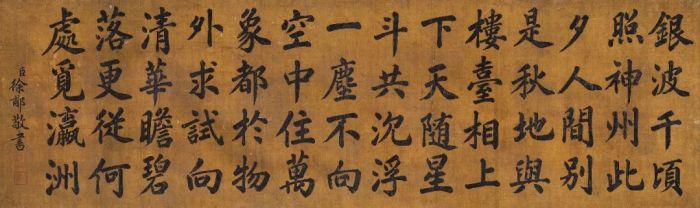 銀波千頃
照神州此
夕人間別
是秋地與
樓臺相上
下天随星
斗共沈浮
一塵不向
空中住萬
象都於物
外求試向
清華瞻碧
落更從何
處覓瀛洲
臣徐郙敬書